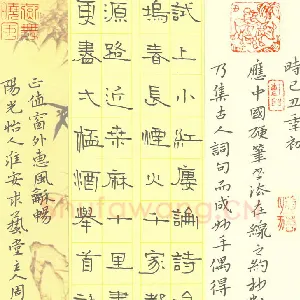 時己丑季初
應中國硬筆書法在線之約抄
乃集古人詞句而成妙手偶得
試上小紅樓論詩
塢春長煙火十家
源路近桑麻十里
更盡酒舉首
正值窗外惠風龢暢
陽光怡人淮安求藝堂主人周
shufawang.CN